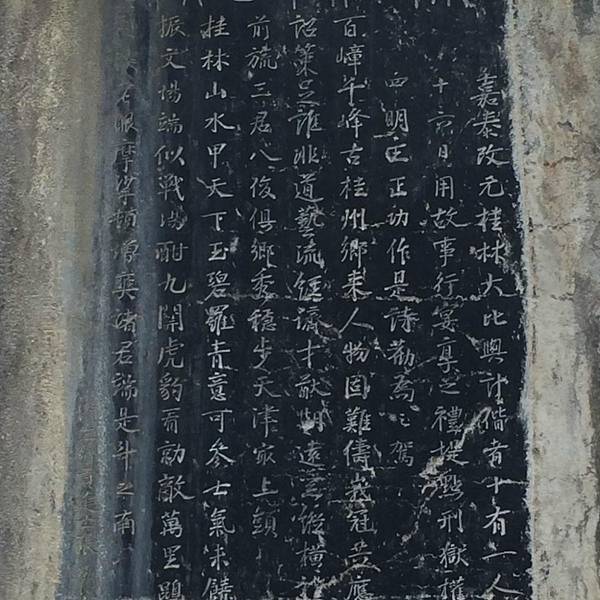 嘉泰改元桂林大比與計偕者十有一人
十六日用故事行宴享之禮提點刑獄權
四明王正功作是詩勸為之駕
百嶂千峰古桂州鄉來人物固難儔峩冠共應
詔策足誰非道藝流經濟才猷期遠器縱橫禮
前旒三君八俊俱鄉秀穩步天津最上頭
桂林山水甲天下玉碧羅青意可參士氣未饒
振文場端似戰場酣九關虎豹看勍敵萬里鵾
老眼摩挲頓增爽諸君端是斗之南